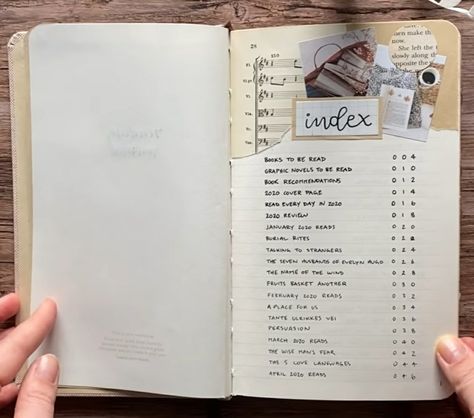 28
150
Fl.
Fl.
Vl.
Vl.
Vla.
index
make them
now.
She left the
slowly along
opposite the
BOOKS TO BE READ 004
GRAPHIC NOVELS TO BE READ 010
BOOK RECOMMENDATIONS 012
2020 COVER PAGE 014
READ EVERY DAY IN 2020 016
2020 REVIEW 018
JANUARY 2020 READS 020
BURIAL RITES 022
TALKING TO STRANGERS 024
THE SEVEN HUSBANDS OF EVELYN HUGO 026
THE NAME OF THE WIND 028
FRUITS BASKET ANOTHER 030
FEBRUARY 2020 READS 032
A PLACE FOR US 034
TANTE ULRIKKES VEI 036
PERSUASION 038
MARCH 2020 READS 040
THE WISE MAN'S FEAR 042
THE 5 LOVE LANGUAGES 044
APRIL 2020 READS 046